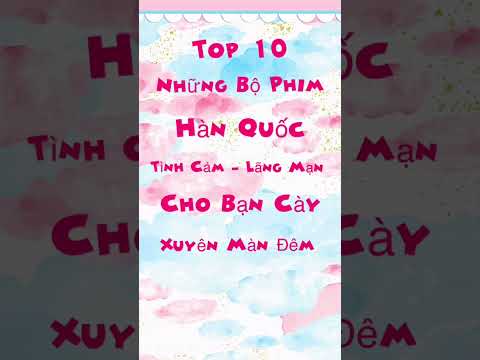 Top 10
Những Bộ Phim
Hàn Quốc
Tình Cảm - Lãng Mạn
Cho Bạn Cày
Xuyên Màn Đêm